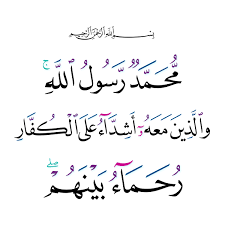 بِسْمِ اللَّهِ الرَّحْمَٰنِ الرَّحِيمِ
مُّحَمَّدٌ رَّسُولُ اللَّهِ ۚ
وَالَّذِينَ مَعَهُ أَشِدَّاءُ عَلَى الْكُفَّارِ
رُحَمَاءُ بَيْنَهُمْ ۖ